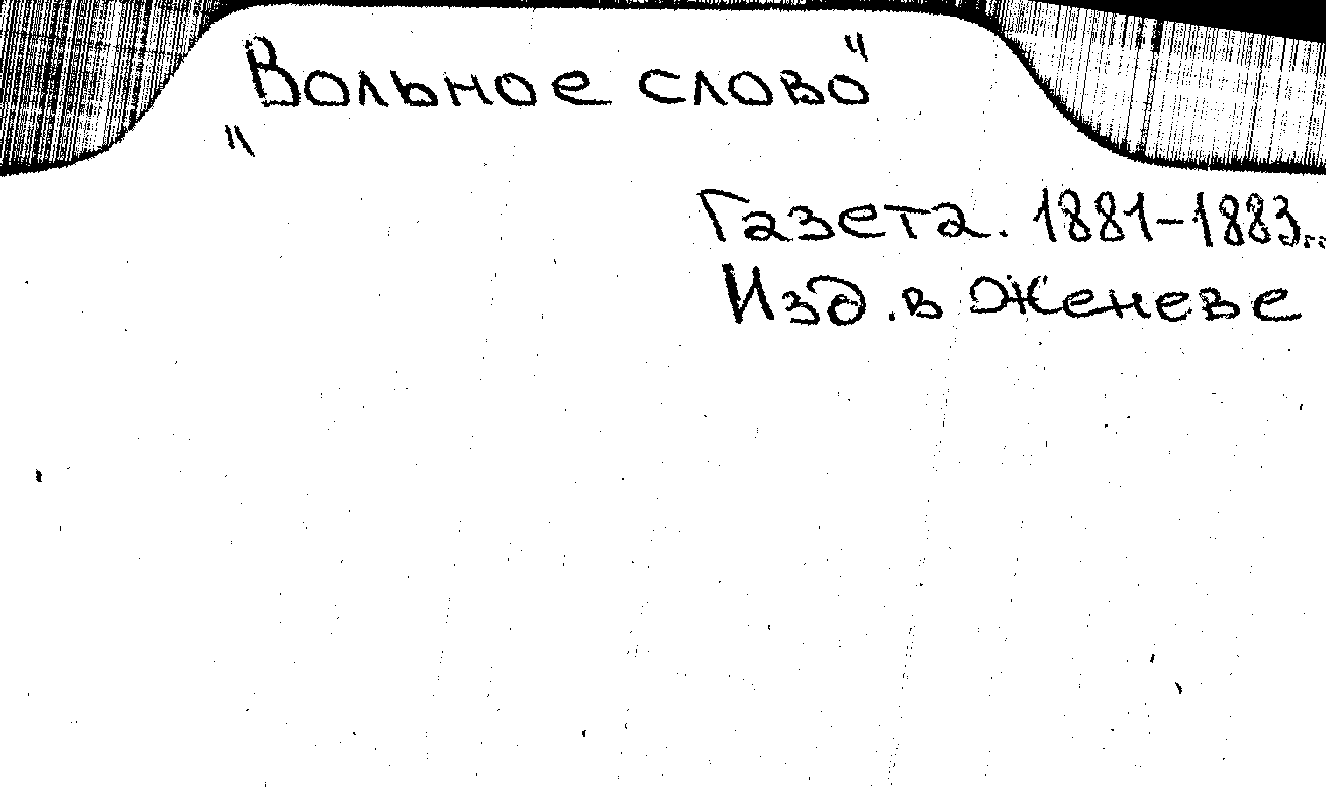 „Вольное слово"
Газета. 1881-1883..
Изд. в Женеве